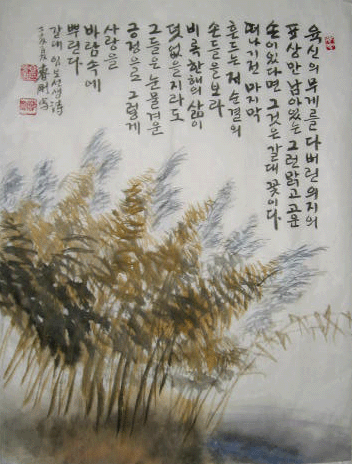 육신의 무게를 다 버린 의지의
표상만 남아있는 그런 맑고 고운
손이 있다면 그것은 갈대 꽃이다.
떠나기 전 마지막
흔드는 저 순결의
손들을 보라
비록 한해의 삶이
덧없을지라도
그들은 눈물겨운
긍정으로 그렇게
사랑을
바람속에
뿌린다
갈대 임보선생 시